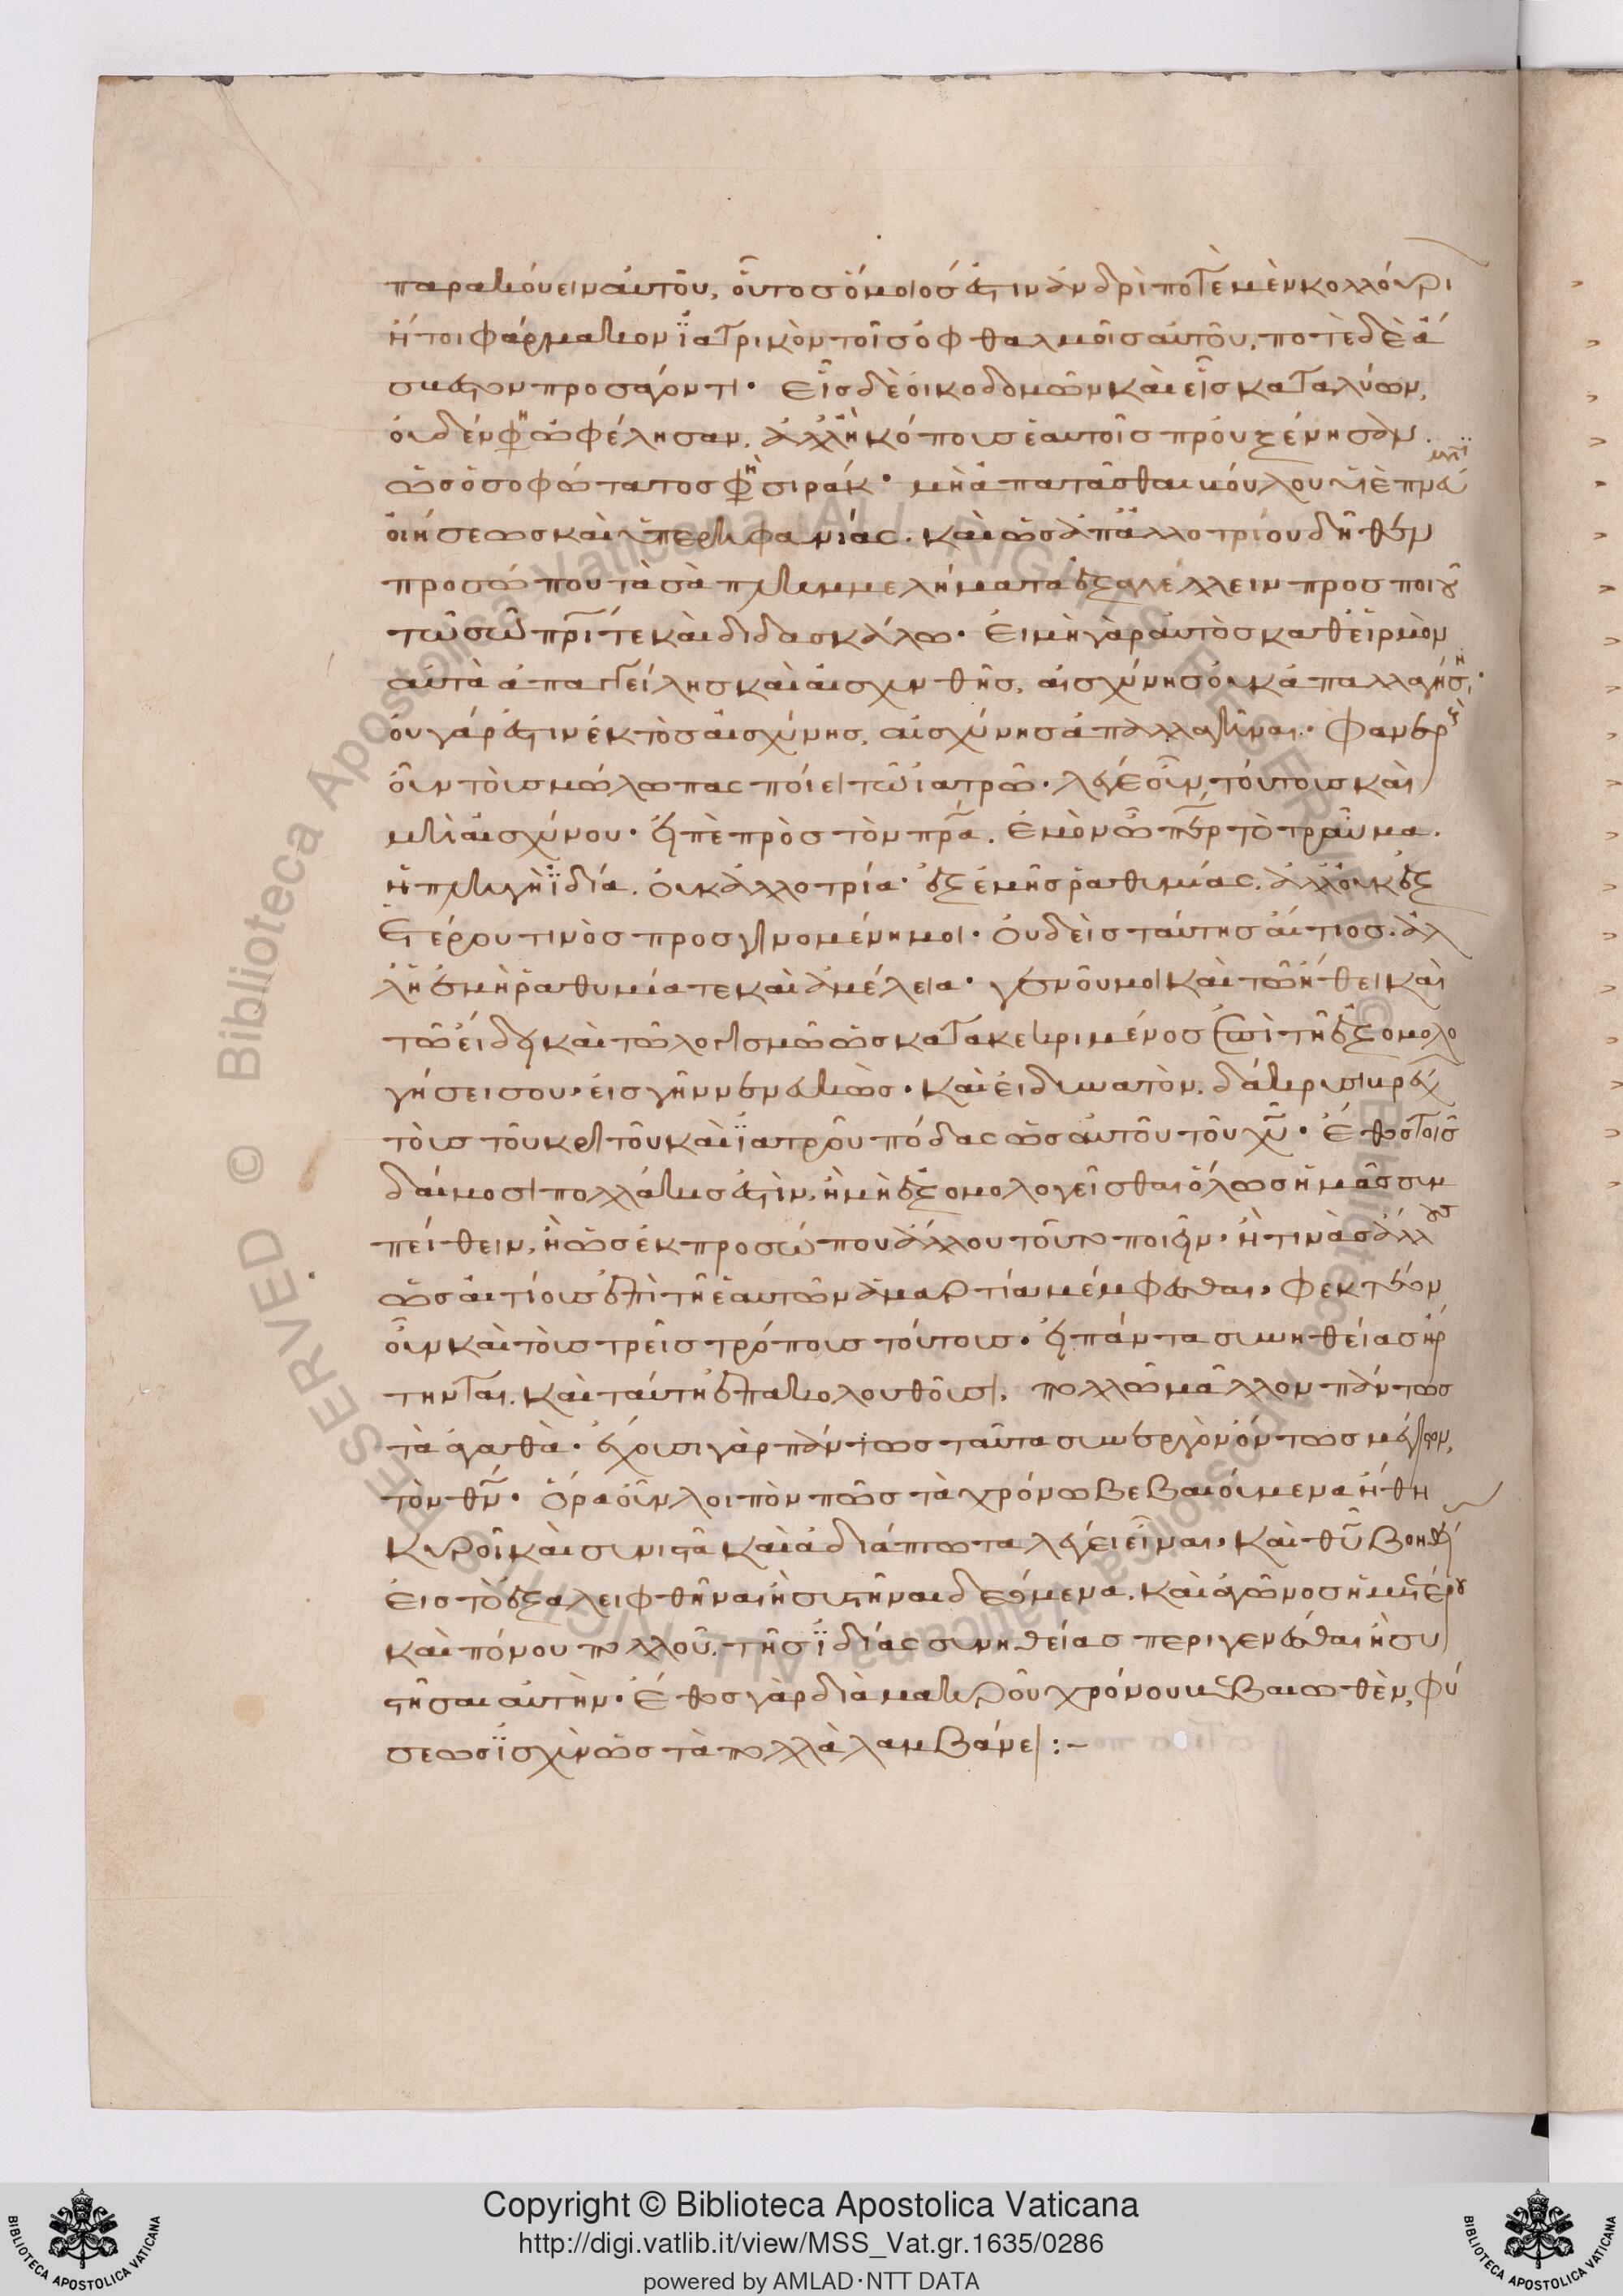 παρακούειν αὐτοῦ, οὗτος ὅμοιός ἐστιν ἀνδρὶ ποτὲ μὲν κολλούρι
ἤτοι φάρμακον ἰατρικὸν τοῖς ὀφθαλμοῖς αὐτοῦ, ποτὲ δὲ ἄ
σβεστον προσάγοντι· εἷς δὲ οἰκοδομῶν καὶ εἷς καταλύων,
οὐδέν φη ὠφέλησαν, ἀλλ' ἢ κόπους ἑαυτοῖς προὐξένησαν.
ὡς ὁ σοφώτατος φη σιράκ· μὴ ἀπατᾶσθαι
οιήσεως καὶ ὑπερηφανίας. καὶ ὡς ἀπ' ἀλλοτρίου δῆθεν
προσώπου τὰ σὰ πλημμελήματα ἐξαγγέλλειν προσποιοῦ
τῶ σῶ πρί τε καὶ διδασκάλω· εἰ μὴ γὰρ αὐτὸς καθ' εἱρμὸν
αὐτὰ ἀπαγγείλης καὶ αἰσχυνθῆς, αἰσχύνης οὐκ ἀπαλλαγήση·
οὐ γάρ ἐστιν ἐκτὸς αἰσχύνης, αἰσχύνης ἀπαλλαγῆναι· φανεροὺς
οὖν τοὺς μώλωπας ποίει τῶ ἰατρῶ· λέγε οὖν τούτους καὶ
μὴ αἰσχύνου· εἰπὲ πρὸς τὸν πρα. ἐμὸν ὦ περ τὸ τραῦμα.
ἡ πληγὴ ἰδία. οὐκ ἀλλοτρία· ἐξ ἐμῆς ῥαθυμίας. ἀλλ' οὐκ ἐξ
ἑτέρου τινὸς προσγινομένη μοι· οὐδεὶς ταύτης αἴτιος. ἀλ
λ' ἡ ἐμὴ ῥαθυμία τε καὶ ἀμέλεια· γενοῦ μοι καὶ τῶ ἤθει καὶ
τῶ εἴδει καὶ τῶ λογισμῶ ὡς κατακεκριμένος ἐπὶ τῆ ἐξομολο
γήσει σου· εἰς γῆν νενευκώς· καὶ εἰ δυνατὸν, δάκρυσι βρέχε
τοὺς τοῦ κριτοῦ καὶ ἰατροῦ πόδας ὡς αὐτοῦ τοῦ χυ· ἔθος τοῖς
δαίμοσι πολλάκις ἐστὶν, ἢ μὴ ἐξομολογεῖσθαι ὅλως ἡμᾶς συμ
πείθειν, ἢ ὡς ἐκ προσώπου ἄλλου τοῦτο ποιεῖν· ἢ τινὰς ἄλλους
ὡς αἰτίους ἐπὶ τῆ ἑαυτῶν ἁμαρτία μέμφεσθαι· φευκτέον
οὖν καὶ τοὺς τρεῖς τρόπους τούτους· εἰ πάντα συνηθείας ἤρ
τηνται. καὶ ταύτη ἐπακολουθοῦσι, πολλῶ μᾶλλον πάντως
τὰ ἀγαθὰ· ἔχουσι γὰρ πάντως ταῦτα συνεργὸν ὄντως μέγαν,
τὸν θν· ὅρα οὖν λοιπὸν πῶς τὰ χρόνω βεβαιούμενα ἤθη
κυροῖ καὶ συνιστᾶ καὶ ἀδιάπτωτα λέγει εἶναι· καὶ θυ βοηθεί
εἰς τὸ ἐξαλειφθῆναι ἢ σβεσθῆναι δεόμενα. καὶ ἀγῶνος ἡμετέρου
καὶ πόνου πολλοῦ, τῆς ἰδίας συνηθείας περιγενέσθαι ἢ συ
στῆσαι αὐτὴν· ἔθος γὰρ διὰ μακροῦ χρόνου βεβαιωθὲν, φύ
σεως ἰσχὺν ὡς τὰ πολλὰ λαμβάνει :-
Copyright © Biblioteca Apostolica Vaticana
http://digi.vatlib.it/view/MSS_Vat.gr.1635/0286
powered by AMLAD·NTT DATA
BIBLIOTECA APOSTOLICA VATICANA
BIBLIOTECA APOSTOLICA VATICANA
© Biblioteca Apostolica Vaticana (ALL RIGHTS RESERVED) © Biblioteca Apostolica Vaticana (ALL RIGHTS RESERVED)